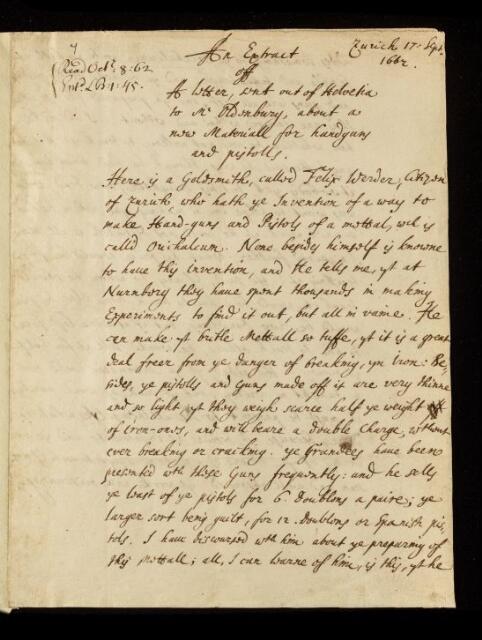 4
Read Oct: 8: 62
Ent:d LB 1: 45.
Zurich 17. Sept.
1662.
An Extract
off
A letter, sent out of Helvetia
to Mr Oldenburg, about a
new Materiall for handguns
and pistolls.
Here is a Goldsmith, called Felix Werder, Citizen
of Zurich, who hath ye Invention of a way to
make Hand-guns and Pistols of a mettal, wch is
calld Orichalcum. None besides himself is knowne
to have this Invention, and He tells me, yt at
Nurnberg they have spent thousands in making
Experiments to find it out, but all in vaine. He
can make yt britle Mettall so tuffe, yt it is a great
deal freer from ye danger of breaking, yn Iron: Be,
sides, ye pistolls and Guns made off it are very thinne
and so light, yt they weigh scarce half ye weight
of Iron-ones, and will beare a double Charge, without
ever breaking or cracking. ye Grandees have been
presented wth these Guns frequently: and he sells
ye least of ye pistols for 6. Doublons a paire; ye
larger sort being guilt, for 12. Doublons or Spanish pis,
tols. I have discoursed wth him about ye preparing of
this Mettall; all, I can learne of him, is this, yt he